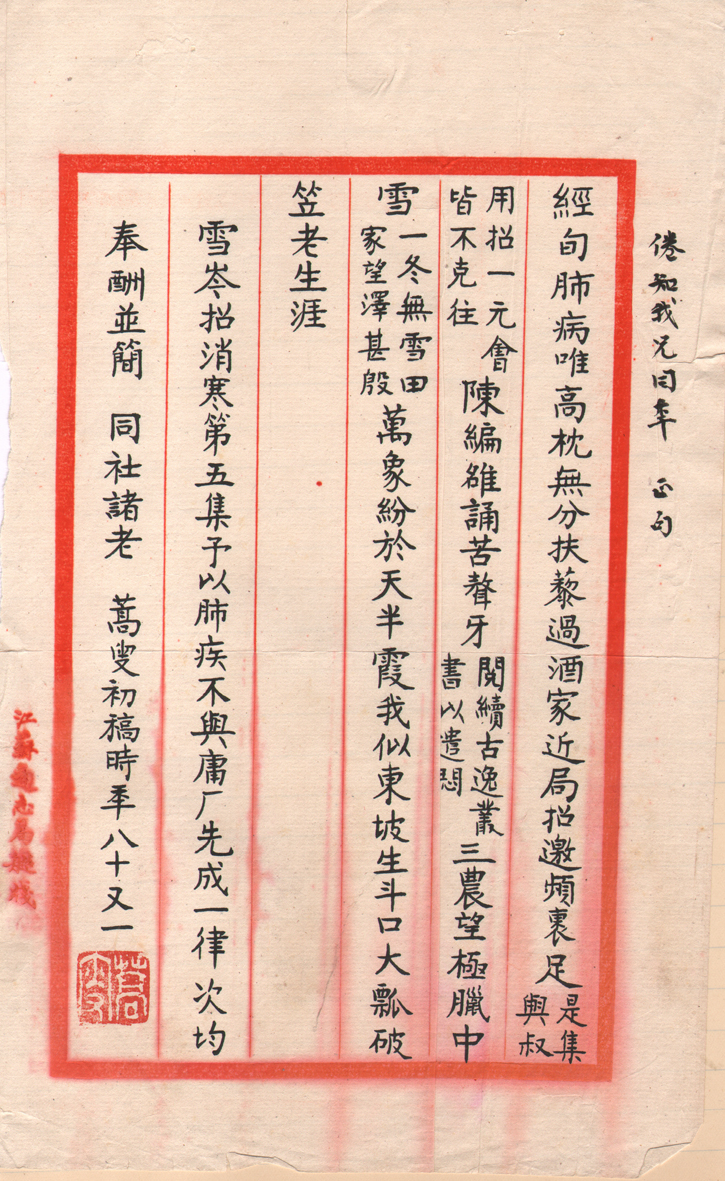 倦知我兄同年　正句
經旬肺病唯高枕無分扶藜過酒家近局招邀頻裹足是集與叔
用招一元會皆不克往陳編雒誦苦聱牙閱續古逸叢書以遣悶三農望極臘中
雪一冬無雪田家望澤甚殷萬象紛於天半霞我似東坡生斗口大瓢破
笠老生涯
雪岑招消寒第五集予以肺疾不與庸厂先成一律次均
奉酬並簡　同社諸老　蒿叟初稿時年八十又一
蒿叟
江蘇通志局攥牋